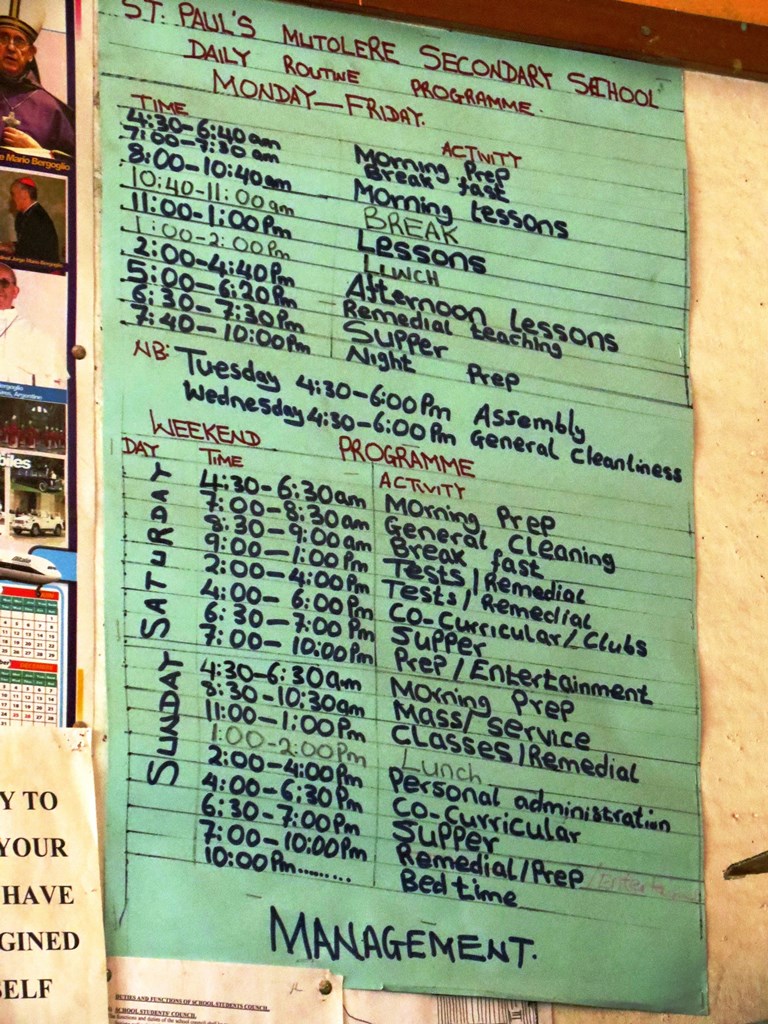 ST. PAUL'S MUTOLERE SECONDARY SCHOOL
DAILY ROUTINE PROGRAMME.
MONDAY—FRIDAY.
TIME ACTIVITY
4:30-6:40am Morning Prep
7:00-7:30am Break fast
8:00-10:40am Morning Lessons
10:40-11:00am BREAK
11:00-1:00Pm Lessons
1:00-2:00Pm LUNCH
2:00-4:40Pm Afternoon Lessons
5:00-6:20Pm Remedial teaching
6:30-7:30Pm Supper
7:40-10:00Pm Night Prep
NB: Tuesday 4:30-6:00Pm Assembly
Wednesday 4:30-6:00Pm General Cleanliness
WEEKEND PROGRAMME
DAY TIME ACTIVITY
SATURDAY
4:30-6:30am Morning Prep
7:00-8:30am General Cleaning
8:30-9:00am Break fast
9:00-1:00Pm Tests/Remedial
2:00-4:00Pm Tests/Remedial
4:00-6:00Pm Co-Curricular/Clubs
6:30-7:00Pm Supper
7:00-10:00Pm Prep/Entertainment
SUNDAY
4:30-6:30am Morning Prep
8:30-10:30am Mass/Service
11:00-1:00Pm Classes/Remedial
1:00-2:00Pm Lunch
2:00-4:00Pm Personal administration
4:00-6:30Pm Co-Curricular
6:30-7:00Pm Supper
7:00-10:00Pm Remedial/Prep
10:00Pm......... Bed time
MANAGEMENT.
e Mario Bergoglio
biles
Y TO
YOUR
HAVE
GINED
SELF
DUTIES AND FUNCTIONS OF SCHOOL STUDENTS COUNCIL.
SCHOOL STUDENTS' COUNCIL